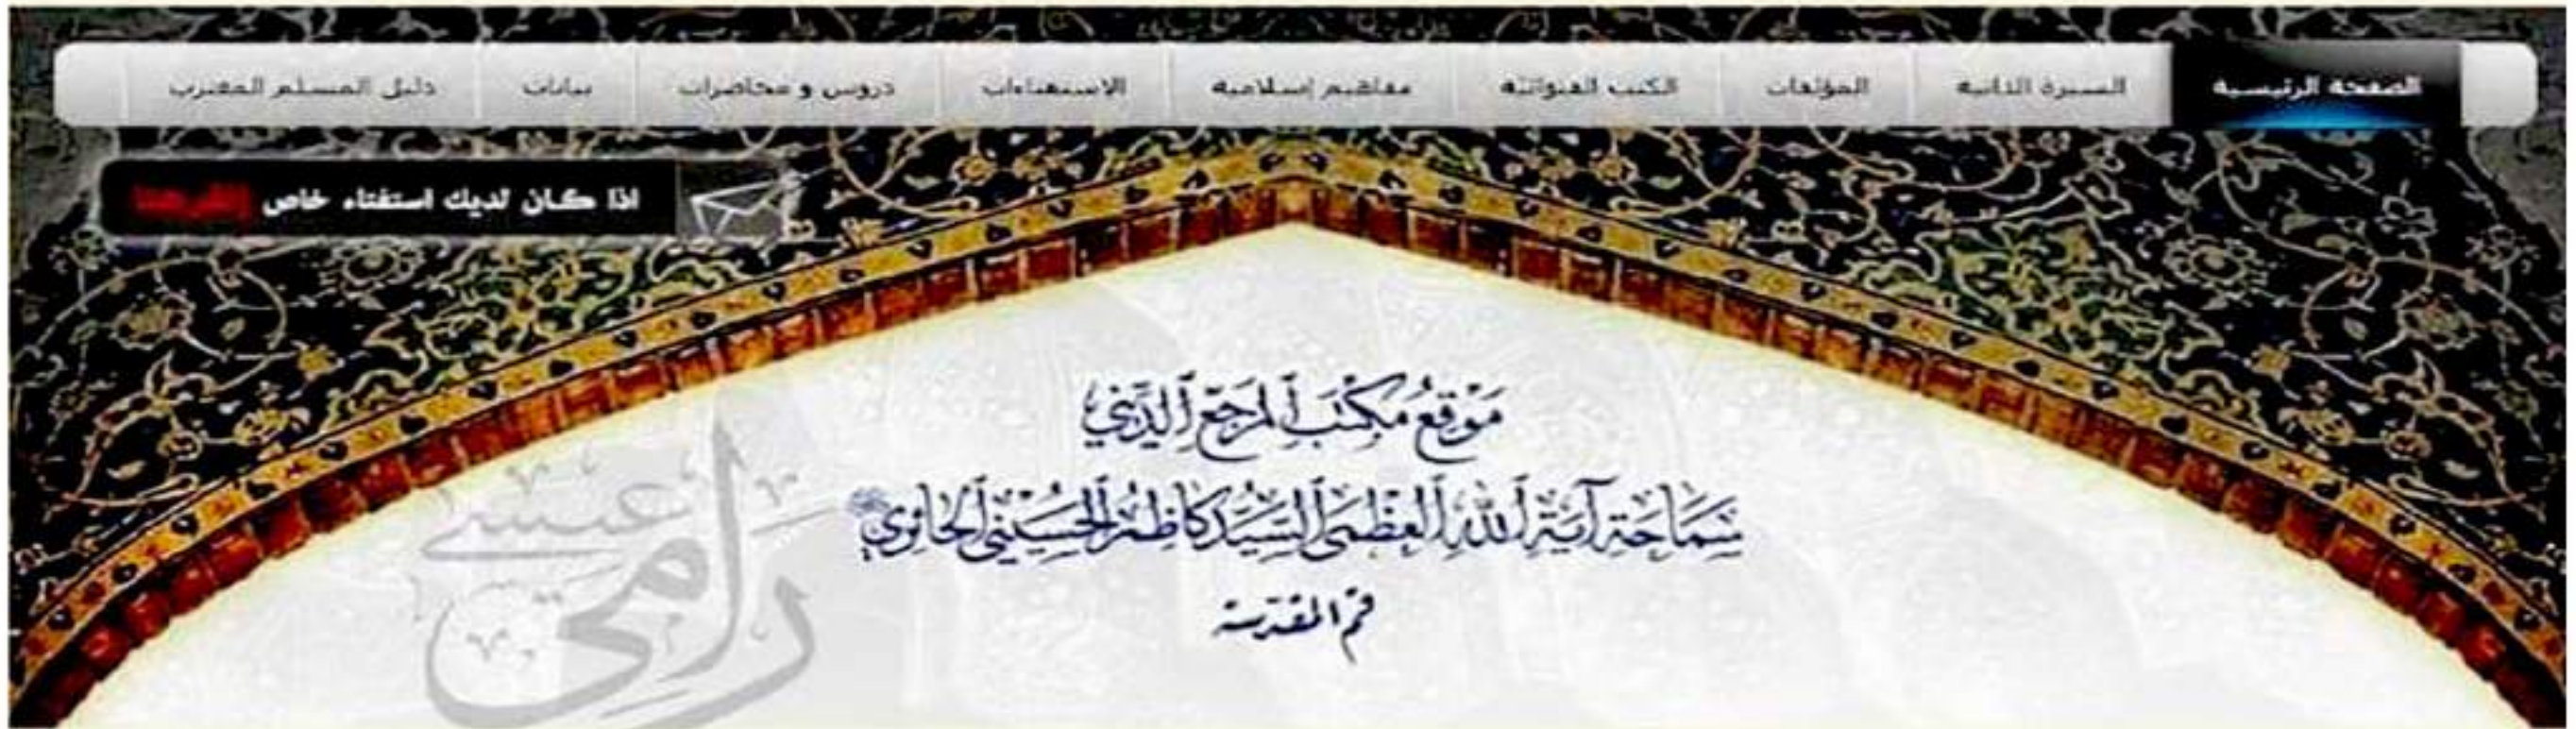 الصفحة الرئيسية
السيرة الذاتية
المؤلفات
الكتب الفتوائية
مفاهيم إسلامية
الاستفتاءات
دروس و محاضرات
بيانات
دليل المسلم المغترب
اذا كان لديك استفتاء خاص
مَوْقِعُ مَكْتَبِ ٱلْمَرْجَعِ ٱلدِّينِيِّ
سَمَاحَةِ آيَةِ ٱللهِ ٱلْعُظْمَى ٱلسَّيِّدِ كَاظِمِ ٱلْحُسَيْنِيِّ ٱلْحَائِرِيِّ
قم المقدسة
رامي عيسى